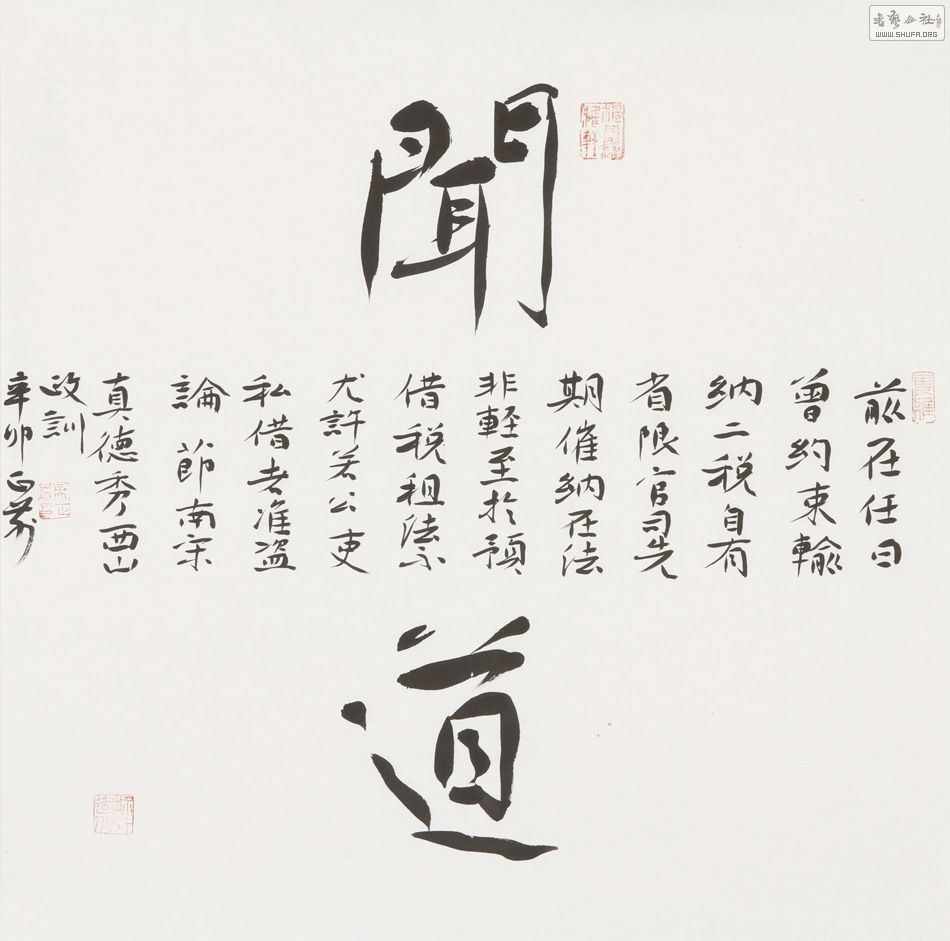 聞
道
前在任日
曾約束輸
納二税自有
省限官司先
期催納在法
非輕至於預
借税租法不
尤許若公吏
私借者准盗
論 節南宋
真德秀西山
政訓
辛卯正
書藝公社
WWW.SHUFA.ORG